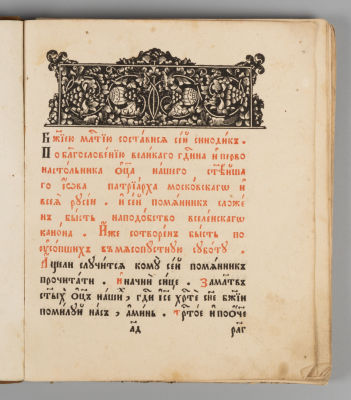 Бж҃їею мл҃тїю составися се́й синоди́къ .
По бл҃гословенїю вели́каго гд҃ина и҆ перво
насто́льника ѻ҆ц҃а̀ на́шего ст҃ѣ́йша
го і҆́ѡва патрїа́рха моско́вскагѡ и҆
всеѧ̀ русі́и . и҆ се́й помѧ́нникъ сло́же
нъ бы́сть наподо́бство вселе́нскагѡ
кано́на . И҆́же сотворе́нъ бы́сть по
ᲂу҆со́пшихъ въмѧсопу́стную субо́ту .
А҆ще́ли случи́тсѧ кому̀ се́й помѧ́нникъ
прочита́ти . и҆ начнѝ си́це . За мл҃твъ
ст҃ы́хъ ѻ҆ц҃ъ на́ши́х , гд҃и і҆с҃е хр҃тѐ сн҃е бж҃їи
поми́луй на́съ , а҆ми́нь . тр҃то́е и҆ по ѻ҆́че